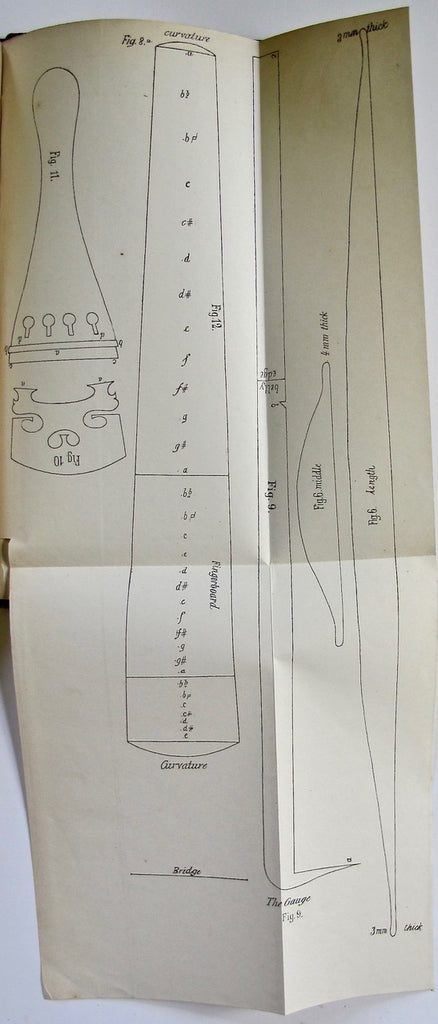 curvature
Fig. 8.
a
b♭
b♮
c
c#
d
d#
e
f
f#
g
g#
a
b♭
b♮
c
d
d#
e
f
f#
g
g#
a
b♭
b♮
c
c#
d
d#
e
Curvature
Fig. 12.
Fingerboard
Bridge
Fig. 11.
d
d
b
b
a
c
c
a
a
Fig. 10
edge
belly
b
Fig. 9.
a
The Gauge
Fig. 9.
4 mm thick
Fig. 6. middle
2 mm thick
Fig. 6. length
3 mm thick